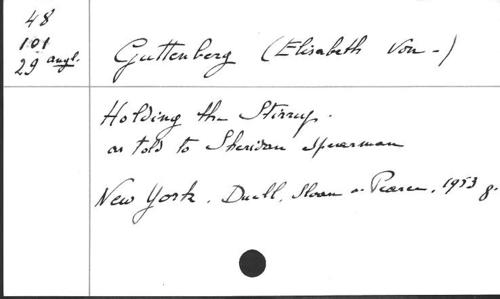 48
101
29 angl.
Guttenberg (Elisabeth von -)
Holding the Stirrup.
as told to Sheridan Spearman
New York. Duell, Sloan a. Pearce, 1953 8.